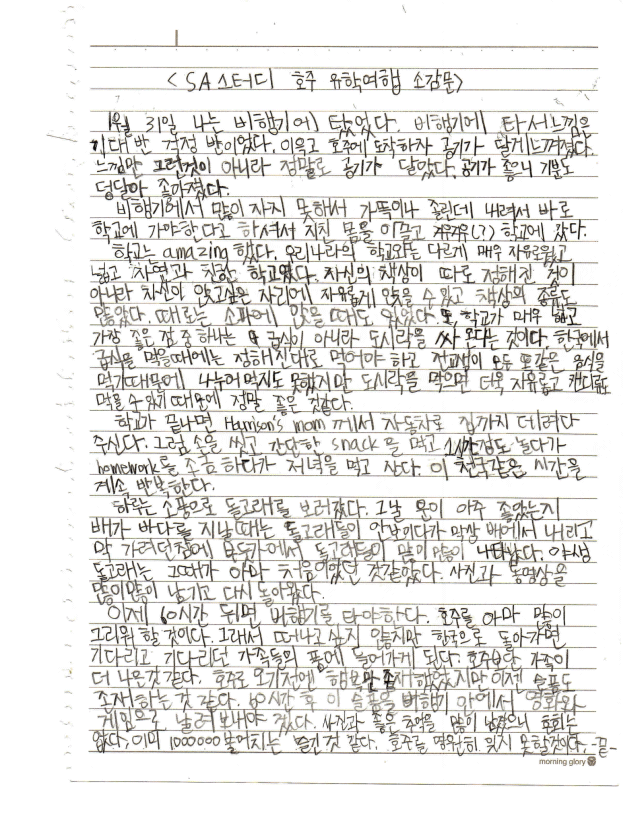 <SA스터디 호주 유학여행 소감문>
1월 31일 나는 비행기에 탔었다. 비행기에 타서 느낌은
기대 반 걱정 반이었다. 이윽고 호주에 도착하자 공기가 달게 느껴졌다.
느낌만 그런것이 아니라 정말로 공기가 달았다. 공기가 좋으니 기분도
덩달아 좋아졌다.
비행기에서 많이 자지 못해서 가뜩이나 졸린데 내려서 바로
학교에 가야한다고 하셔서 지친 몸을 이끌고 겨우겨우(?) 학교에 갔다.
학교는 amazing 했다. 우리나라의 학교와는 다르게 매우 자유로웠고
넓고 자연과 친한 학교였다. 자신의 책상이 따로 정해진 것이
아니라 자신이 앉고싶은 자리에 자유롭게 앉을 수 있고 책상의 종류도
많았다. 때로는 소파에 앉을 때도 있었다. 또, 학교가 매우 넓고
가장 좋은 점 중 하나는 급식이 아니라 도시락을 싸 온다는 것이다. 한국에서
급식을 먹을때에는 정해진대로 먹어야 하고 전교생이 모두 똑같은 음식을
먹기때문에 나누어 먹지도 못했지만 도시락을 먹으면 더욱 자유롭고 캔디류도
먹을 수 있기 때문에 정말 좋은 것같다.
학교가 끝나면 Harrison's mom 께서 자동차로 집까지 데려다
주신다. 그럼 손을 씻고 간단한 snack을 먹고 1시간정도 놀다가
homework를 조금 하다가 저녁을 먹고 잔다. 이 천국같은 시간을
계속 반복한다.
하루는 소풍으로 돌고래를 보러갔다. 그날 운이 아주 좋았는지
배가 바다를 지날때는 돌고래들이 안보이다가 막상 배에서 내리고
막 가려던 참에 부둣가에서 돌고래들이 많이많이 나타났다. 야생
돌고래는 그때가 아마 처음이었던 것같았다. 사진과 동영상을
많이많이 남기고 다시 돌아왔다.
이제 60시간 뒤면 비행기를 타야한다. 호주를 아마 많이
그리워 할 것이다. 그래서 떠나고 싶지 않지만 한국으로 돌아가면
기다리고, 기다리던 가족들의 품에 들어가게 된다. 호주보단 가족이
더 나은것 같다. 호주로 오기전엔 행복만 존재했었지만 이젠 슬픔도
존재하는 것 같다. 60시간 후 이 슬픔을 비행기 안에서 영화와
게임으로 날려 보내야 겠다. 사진과 좋은 추억을 많이 남겼으니 후회는
없다. 이미 1000000불어치는 즐긴것 같다. 호주를 영원히 잊지 못할것이다. -끝-
morning glory